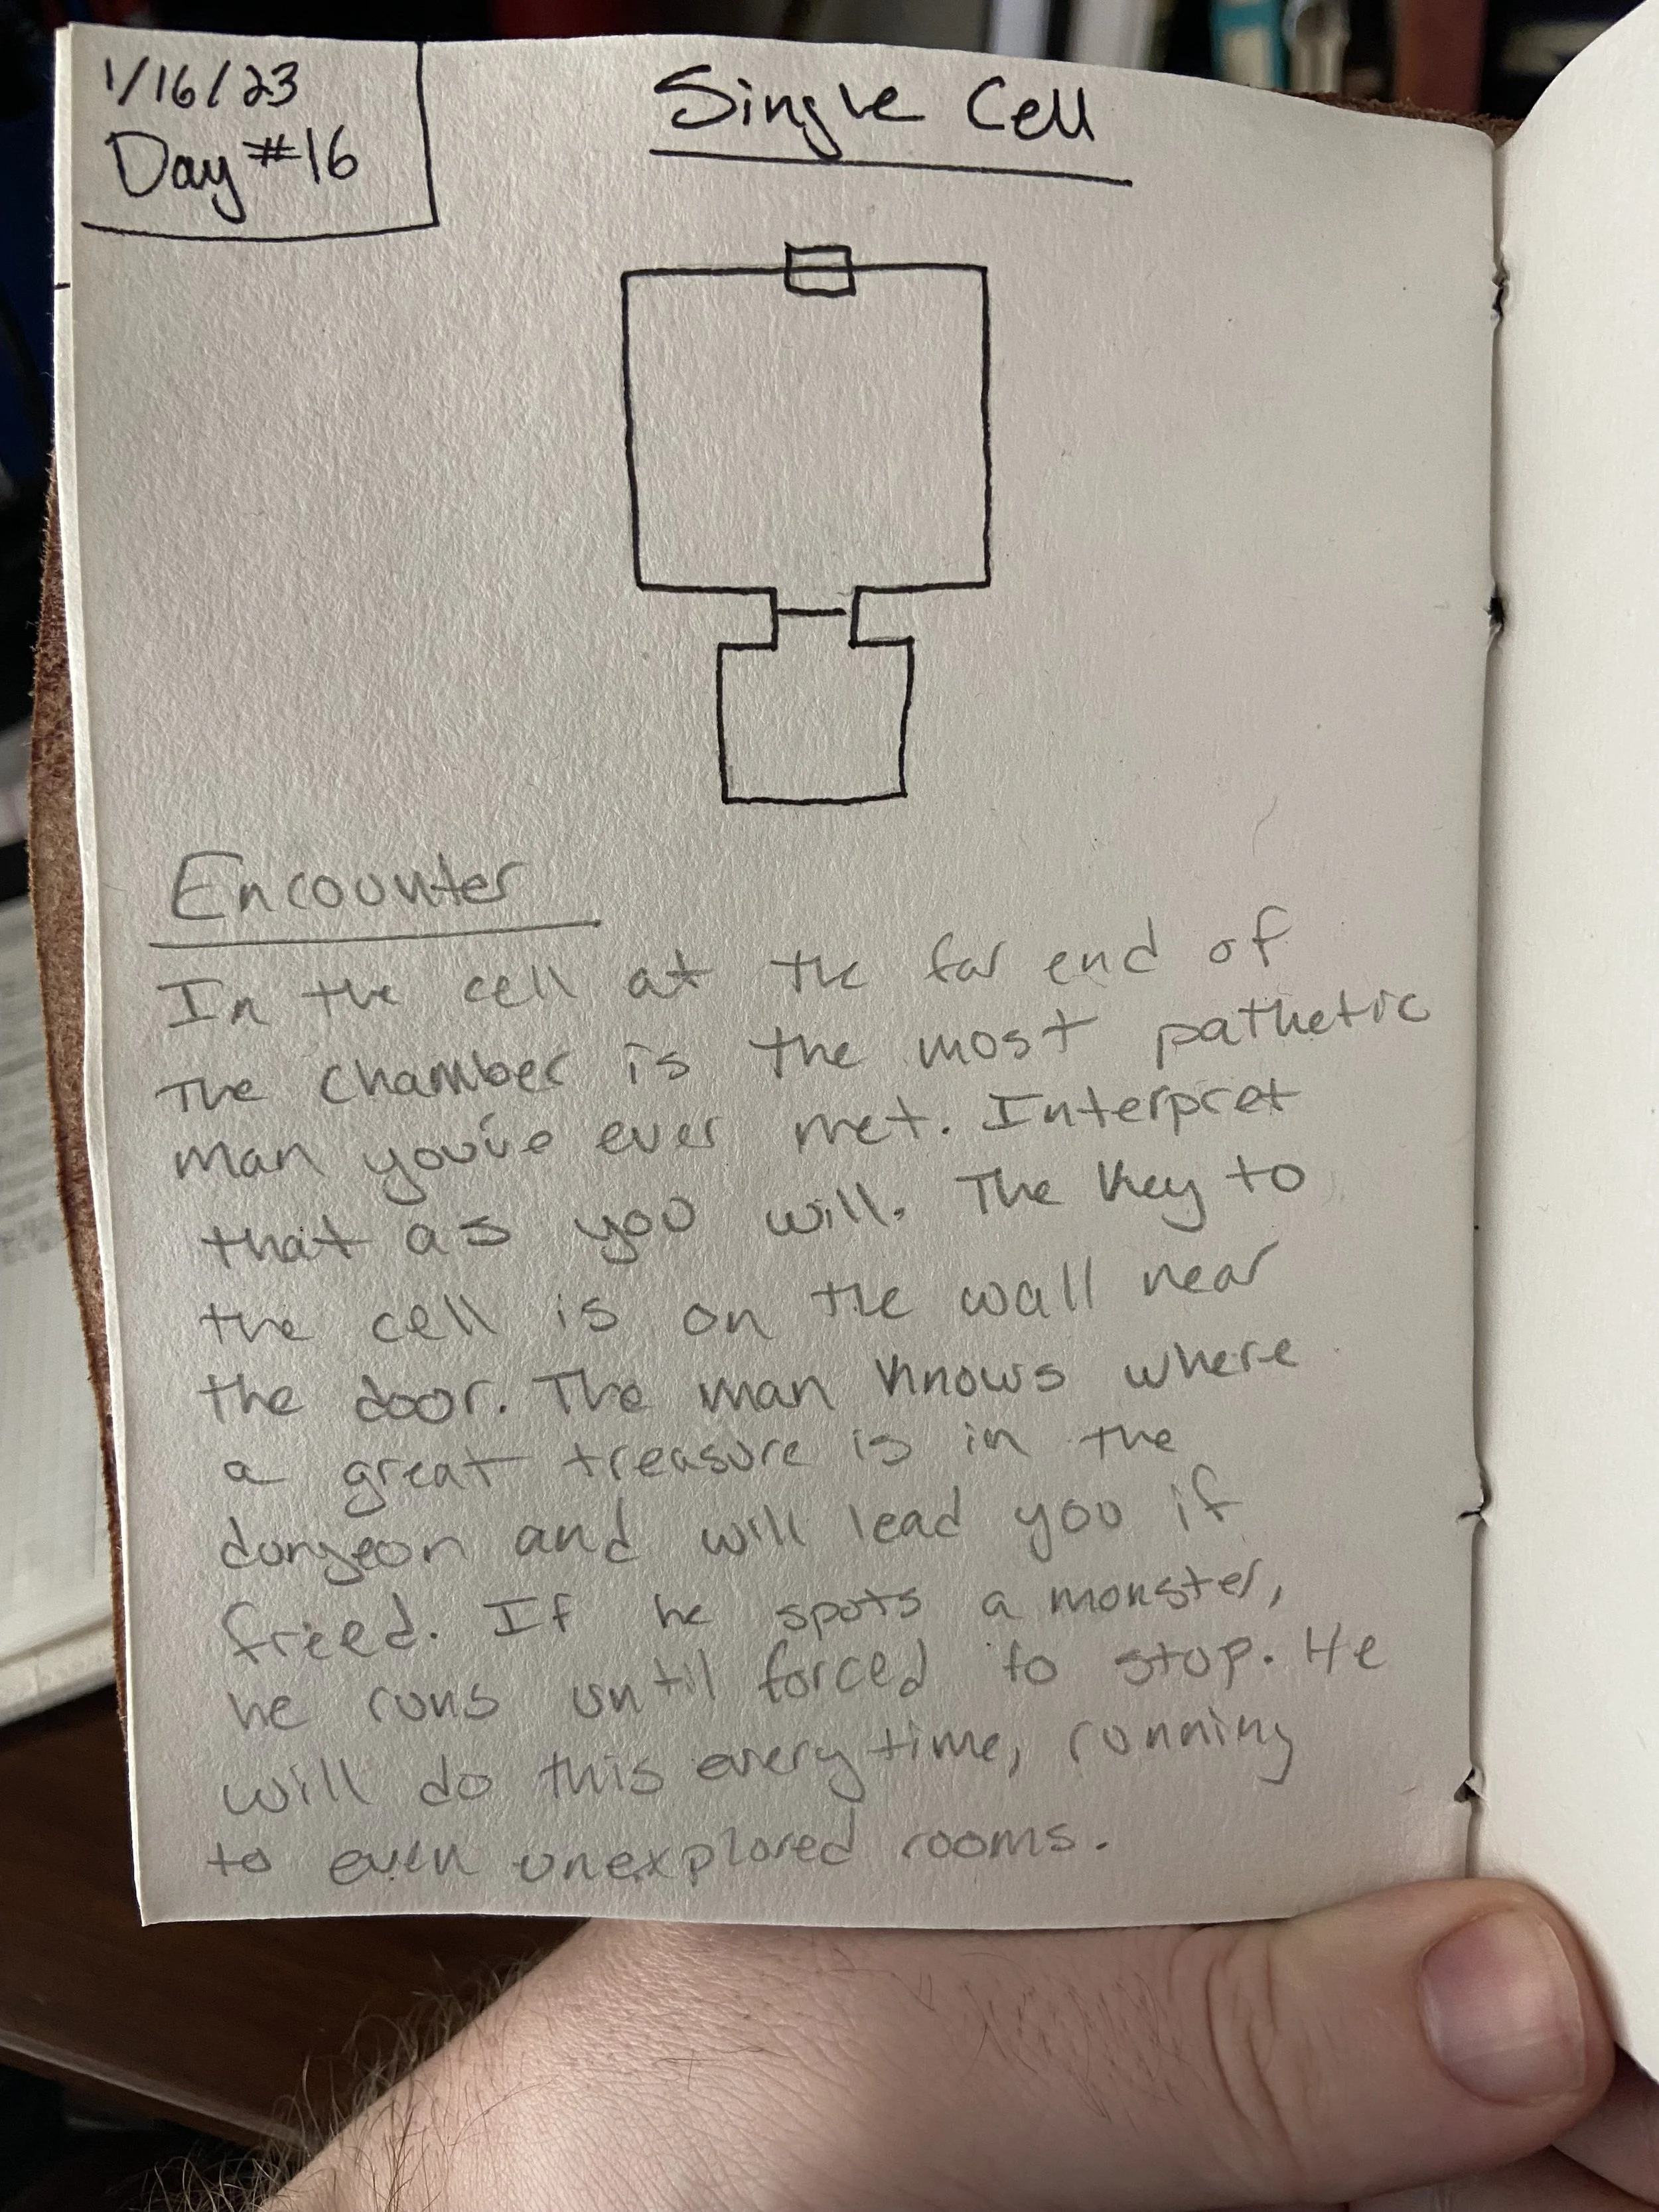 1/16/23
Day #16
Single Cell
Encounter
In the cell at the far end of
the chamber is the most pathetic
man you've ever met. Interpret
that as you will. The key to
the cell is on the wall near
the door. The man knows where
a great treasure is in the
dungeon and will lead you if
freed. If he spots a monster,
he runs until forced to stop. He
will do this every time, running
to even unexplored rooms.